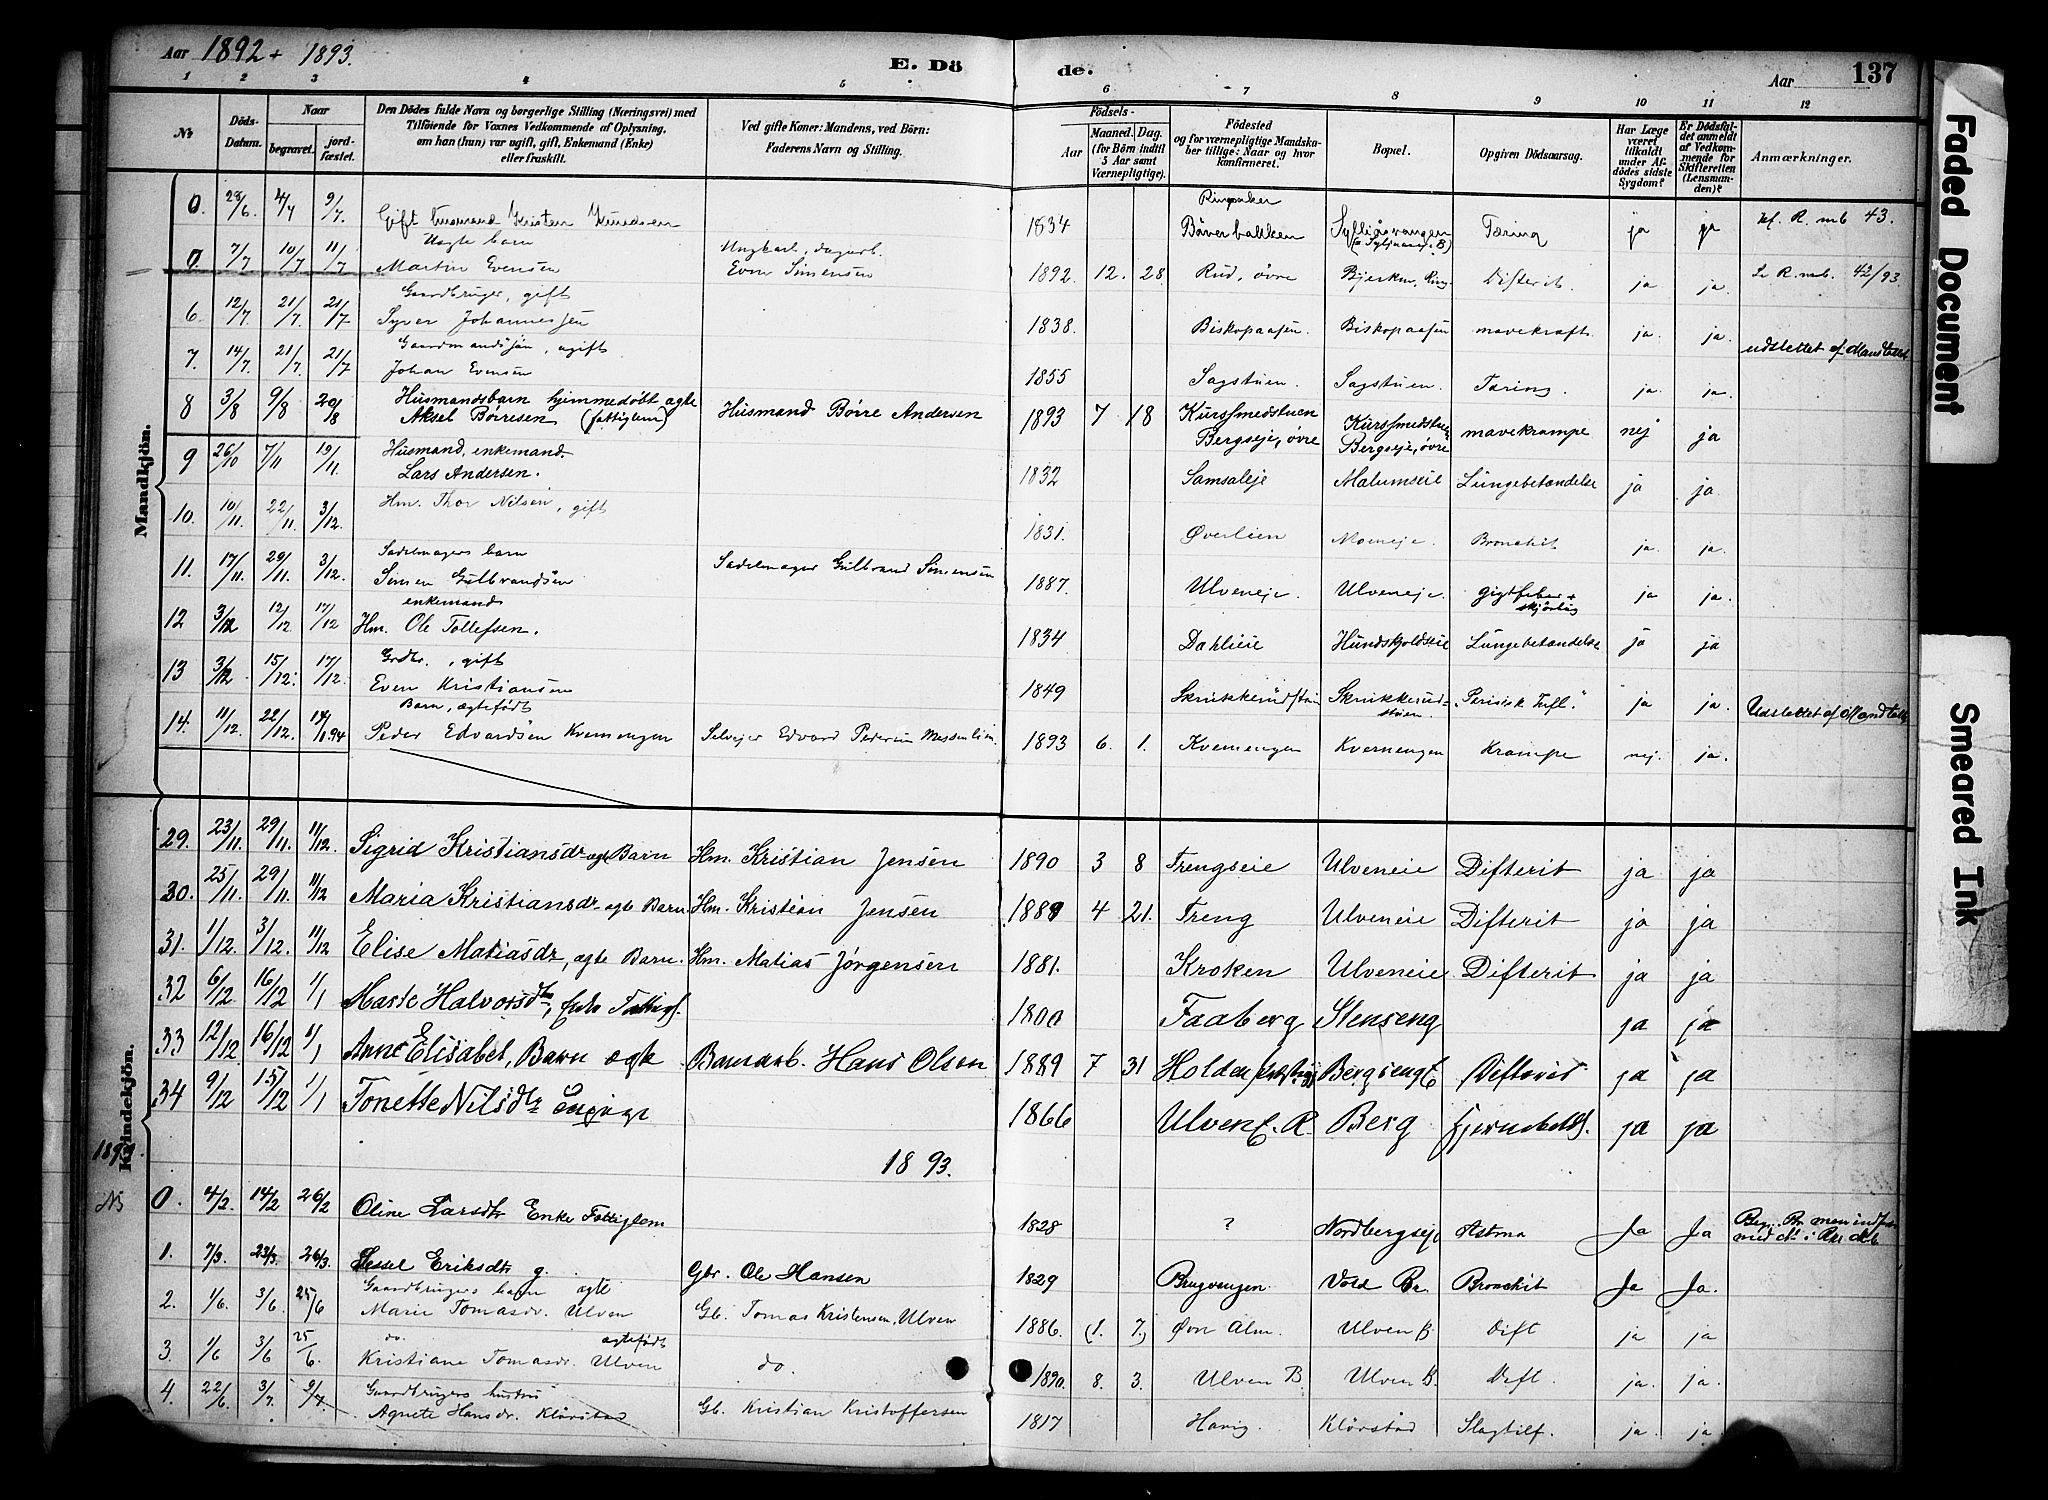 Aar 1892 + 1893.
E. Dö de.
Aar 137
1 2 3 4 5 6 7 8 9 10 11 12
No
Döds-Datum.
Naar begravet. jordfæstet.
Den Dödes fulde Navn og borgerlige Stilling (Næringsvei) med
Tilföiende for Voxnes Vedkommende af Oplysning,
om han (hun) var ugift, gift, Enkemand (Enke)
eller fraskilt.
Ved gifte Koner: Mandens, ved Börn:
Faderens Navn og Stilling.
Födsels-
Aar Maaned. Dag.
(for Börn indtil
5 Aar samt
Værnepligtige).
Födested
og for værnepligtige Mandska-
ber tillige: Naar og hvor
konfirmeret.
Bopæl.
Opgiven Dödsaarsag.
Har Læge
været
tilkaldt
under Af-
dödes sidste
Sygdom?
Er Dödsfal-
det anmeldt
af Vedkom-
mende for
Skifteretten
(Lensman-
den)?
Anmærkninger.
Mandkjön.
0. 28/6. 4/7 9/7. Gift Husmand Kristen Knudsen 1834 Ringsaker Bäverbakken Tæring ja ja kf. R. mb 43.
0. 7/7 10/7 11/7 Uægte barn Martin Evensen Ungkarl, dagarb. Even Simensen 1892 12. 28. Rud, øvre Difterit. ja ja. Se R. mb. 42/93
6. 12/7. 21/7. 21/7. Gaardbruger, gift Syver Johannessen 1838. Biskopaasen. Biskopaasen mavekræft. ja. ja.
7. 14/7. 21/7. 21/7 Gaardmandssøn, ugift Johan Evensen 1855 Sagstuen. Sagstuen. Tæring. ja. ja. udslettet af Mandtallet
8 3/8 9/8 20/8 Husmandsbarn hjemmedøbt ægte Aksel Børresen (fattiglem) Husmand Børre Andersen 1893 7 18 Kurssmedstuen Bergseje, øvre Kurssmedstuen Bergseje, øvre mavekrampe nej ja
9 26/10 7/11 19/11. Husmand, enkemand. Lars Andersen. 1832 Samsaleje Malumseie Lungebetændelse ja ja.
10. 10/11. 22/11. 3/12. Hm. Thor Nilsen, gift 1831. Øverlien Moeneje. Bronchit ja. ja.
11. 17/11. 29/11. 3/12. Sadelmagers barn Simen Gulbrandsen Sadelmager Gulbrand Simensen 1887. Ulveneje. Ulveneje. gigtfeber + skjørbug ja ja.
12 3/12 12/12. 17/12 enkemand Hm. Ole Tollefsen. 1834 Dahlieie Hundskjoldseie Lungebetændelse ja ja
13 3/12. 15/12. 17/12. Grdbr., gift Even Kristiansen 1849 Skrukkerudstuen Skrukkerudstuen. ja ja. Udslettet af Mandtallet
14. 11/12. 22/12. 14/1.94 Barn, ægtefødt Peder Edvardsen Kvernengen Selvejer Edvard Pedersen Messenlien. 1893 6. 1. Kvernengen Kvernengen Krampe nej. ja.
Kvindekjön.
29. 23/11. 29/11. 11/12. Sigrid Kristiansdr ægte Barn Hm. Kristian Jensen 1890 3 8 Trengseie Ulveneie Difterit ja ja
30. 25/11. 29/11. 11/12 Maria Kristiansdr ægte Barn Hm. Kristian Jensen 1889 4 21. Treng Ulveneie Difterit ja ja
31. 1/12. 3/12. 11/12 Elise Matiasdr, ægte Barn. Hm. Matias Jørgensen 1881. Kroken Ulveneie Difterit ja ja
32 6/12 16/12 1/1 Marte Halvorsdtr, Enke Fattigl. 1800 Faaberg Stenseng ja ja
33 12/12 16/12 1/1 Anne Elisabet, Barn ægte Barnearb. Hans Olsen 1889 7 31 Holden Difterit ja ja
34 9/12 15/12 1/1 Tonette Nilsdtr 1866 Ulven E. R. Berg ja ja
1893.
No 0. 4/2. 14/2 26/2 Oline Larsdtr Enke Fattiglem 1828 ? Nordbergseje Astma Ja Ja
1. 7/3. 23/3. 26/3. Sessel Eriksdtr g. Gbr. Ole Hansen 1829 Brugvangen Vold Br. Bronchit Ja Ja.
2. 1/6. 3/6. 25/6 Gaardbrugers barn ægte Marie Tomasdr. Ulven Gb. Tomas Kristensen, Ulven 1886. (1. 7.) Øvre Alm. Ulven B. Dift ja ja
3. 1/6 3/6 25/6. do. ægtefødt Kristiane Tomasdr. Ulven do. 1890. 8. 3. Ulven B. Ulven B. Dift. ja. ja.
4. 22/6. 3/7. 9/7. Gaardbrugers hustru Agnete Hansdr. Klørstad Gb. Kristian Kristoffersen 1817 Havig. Klørstad Slagtilf. ja. ja.
Faded Document
Smeared Ink